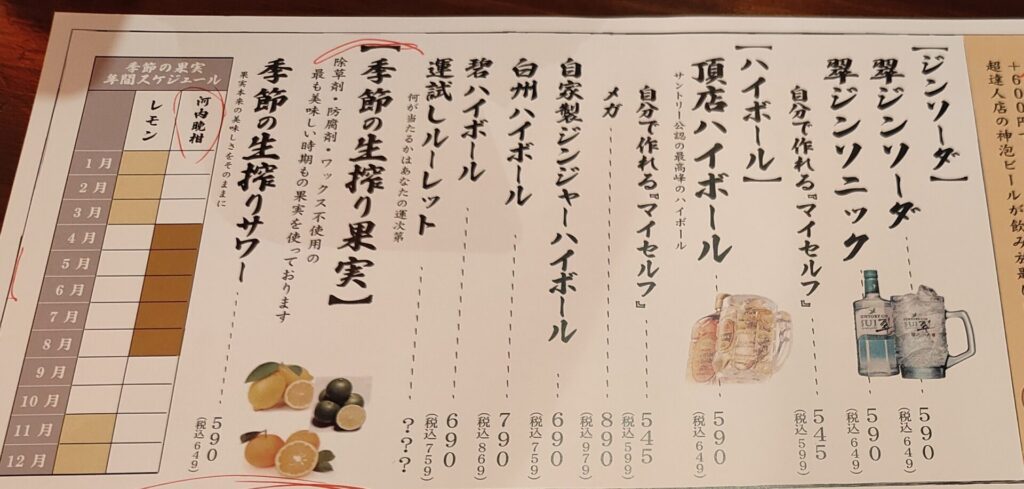 +600円で
超達人店の神泡ビールが飲み放題
【ジンソーダ】
翠ジンソーダ 590 (税込649)
翠ジンソニック 590 (税込649)
自分で作れる『マイセルフ』 545 (税込599)
【ハイボール】
頂店ハイボール 590 (税込649)
サントリー公認の最高峰のハイボール
自分で作れる『マイセルフ』 545 (税込599)
メガ 890 (税込979)
自家製ジンジャーハイボール 690 (税込759)
白州ハイボール 790 (税込869)
碧ハイボール 690 (税込759)
運試しルーレット ???
何が当たるかはあなたの運次第
【季節の生搾り果実】
除草剤・防腐剤・ワックス不使用の
最も美味しい時期もの果実を使っております
季節の生搾りサワー 590 (税込649)
果実本来の美味しさをそのままに
季節の果実
年間スケジュール
レモン
河内晩柑
1月
2月
3月
4月
5月
6月
7月
8月
9月
10月
11月
12月
SUI 翠
SUI 翠